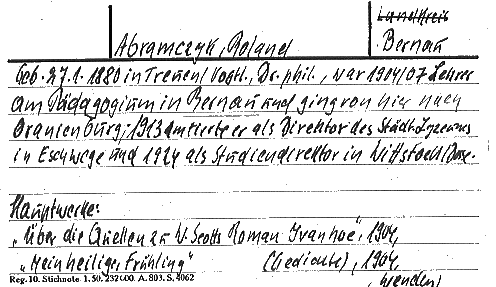 Landkreis
Abramczyk, Roland Bernau
Geb. 27.1.1880 in Treuen/Vogtl., Dr. phil., war 1904/07 Lehrer
am Pädagogium in Bernau und ging von hier nach
Oranienburg; 1913 amtierte er als Direktor des Städt. Lyzeums
in Eschwege und 1924 als Studiendirektor in Wittstock/Dosse.
Hauptwerke:
„Über die Quellen zu W. Scotts Roman Ivanhoe", 1904,
„Mein heiliger Frühling" (Gedichte), 1904,
Reg. 10. Stichnote. 1. 50. 232 000. A. 803. S. 4062